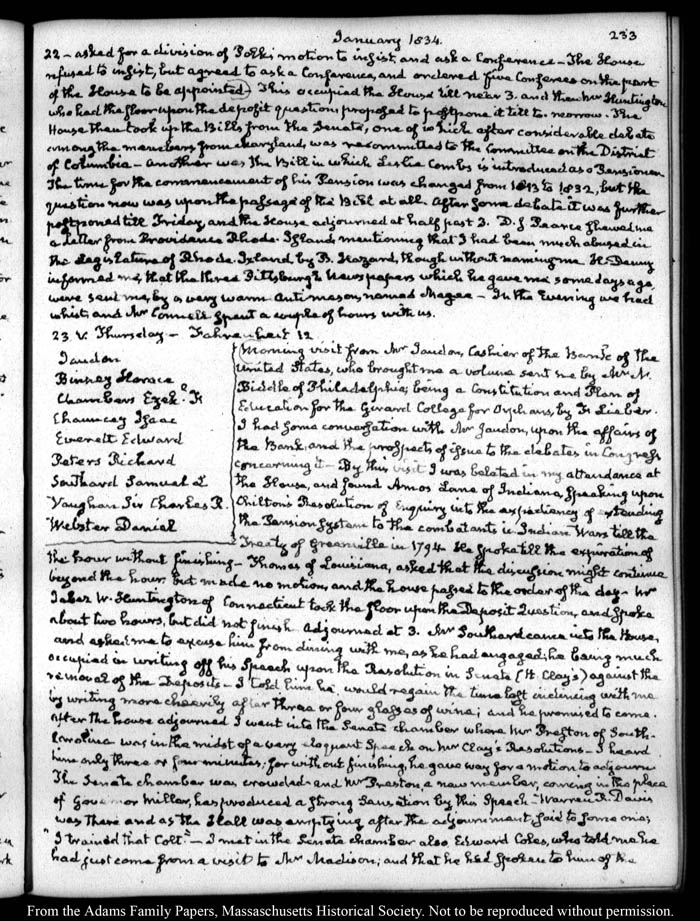 January 1834.
233
22 - asked for a division of Polk's motion to insist, and ask a Conference - The House
refused to insist, but agreed to ask a Conference, and ordered five Conferees on the part
of the House to be appointed) This occupied the House till near 3. and then Mr Huntington
who had the floor upon the deposit question, proposed to postpone it till to-morrow. The
House then took up the Bills from the Senate, one of which after considerable debate
among the members from Maryland, was recommitted to the Committee on the District
of Columbia - Another was the Bill in which Leslie Combs is introduced as a Pensioner
The time for the commencement of his Pension was changed from 1813 to 1832, but the
question now was upon the passage of the Bill at all. After some debate it was further
postponed till Friday, and the House adjourned at half past 3. D. J Pearce shewed me
a letter from Providence Rhode-Island, mentioning that I had been much abused in
the Legislature of Rhode-Island by B. Hazard, though without naming me H. Denny
informed me, that the three Pittsburgh Newspapers which he gave me some days ago,
were sent me, by a very warm Antimason, named Magee - In the Evening we had
whist; and Mr Connell spent a couple of hours with us.
23. V. Thursday - Fahrenheit 12
Jaudon
Binney Horace
Chambers Ezek. F
Chauncey Isaac
Everett Edward
Peters Richard
Southard Samuel L
Vaughan Sir Charles R.
Webster Daniel
Morning visit from Mr Jaudon, Cashier of the Bank of the
United States, who brought me a volume sent me by Mr N.
Biddle of Philadelphia, being a Constitution and Plan of
Education for the Girard College for Orphans, by F. Lieber.
I had some conversation with Mr Jaudon, upon the affairs of
the Bank, and the prospects of issue to the debates in Congress
concerning it - By this visit I was belated in my attendance at
the House, and found Amos Lane of Indiana, speaking upon
Chilton's Resolution of Enquiry into the expediency of extending
the Pension System to the combatants in Indian Wars till the
Treaty of Greenville in 1794 He spoke till the expiration of
the hour without finishing - Thomas of Louisiana, asked that the discussion might continue
beyond the hour, but made no motion, and the house passed to the order of the day - Mr
Jabez W. Huntington of Connecticut took the floor upon the Deposit Question, and spoke
about two hours, but did not finish. Adjourned at 3. Mr Southard came into the House,
and asked me to excuse him from dining with me, as he had engaged; he being much
occupied in writing off his Speech upon the Resolution in Senate (H. Clay's) against the
removal of the Deposits - I told him he would regain the time lost in dining with me
by writing more cheerily after three or four glasses of wine; and he promised to come.
After the house adjourned I went into the Senate chamber where Mr Preston of South-
Carolina was in the midst of a very eloquent Speech on Mr Clay's Resolutions - I heard
him only three or four minutes; for without finishing, he gave way for a motion to adjourn
The Senate chamber was crowded - and Mr Preston, a new member, coming in the place
of Governor Miller, has produced a strong Sensation by this Speech - Warren R. Davis
was there and as the Hall was emptying after the adjournment, said to some one;
"I trained that Colt." - I met in the Senate chamber also, Edward Coles, who told me he
had just come from a visit to Mr Madison; and that he had spoken to him of the
From the Adams Family Papers, Massachusetts Historical Society. Not to be reproduced without permission.